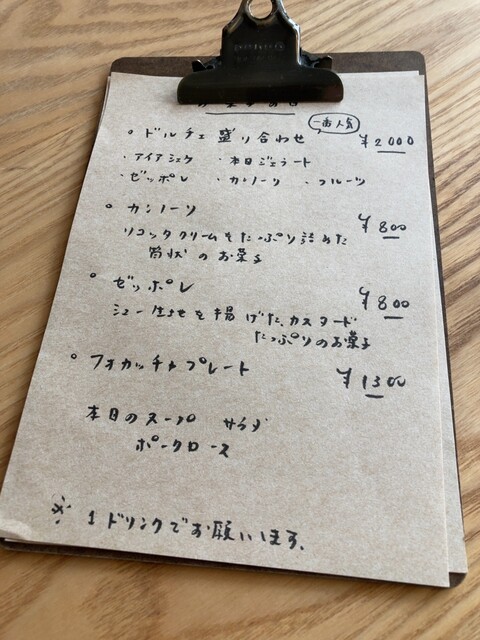 一番人気
• ドルチェ 盛り合わせ ¥2000
・アイアシェケ ・本日ジェラート
・ゼッポレ ・カンノーリ ・フルーツ
• カンノーリ ¥800
リコッタクリームをたっぷり詰めた
筒状のお菓子
• ゼッポレ ¥800
シュー生地を揚げた、カスタード
たっぷりのお菓子
• フォカッチャプレート ¥1300
本日のスープ サラダ
ポークロース
※ 1ドリンクでお願いします。